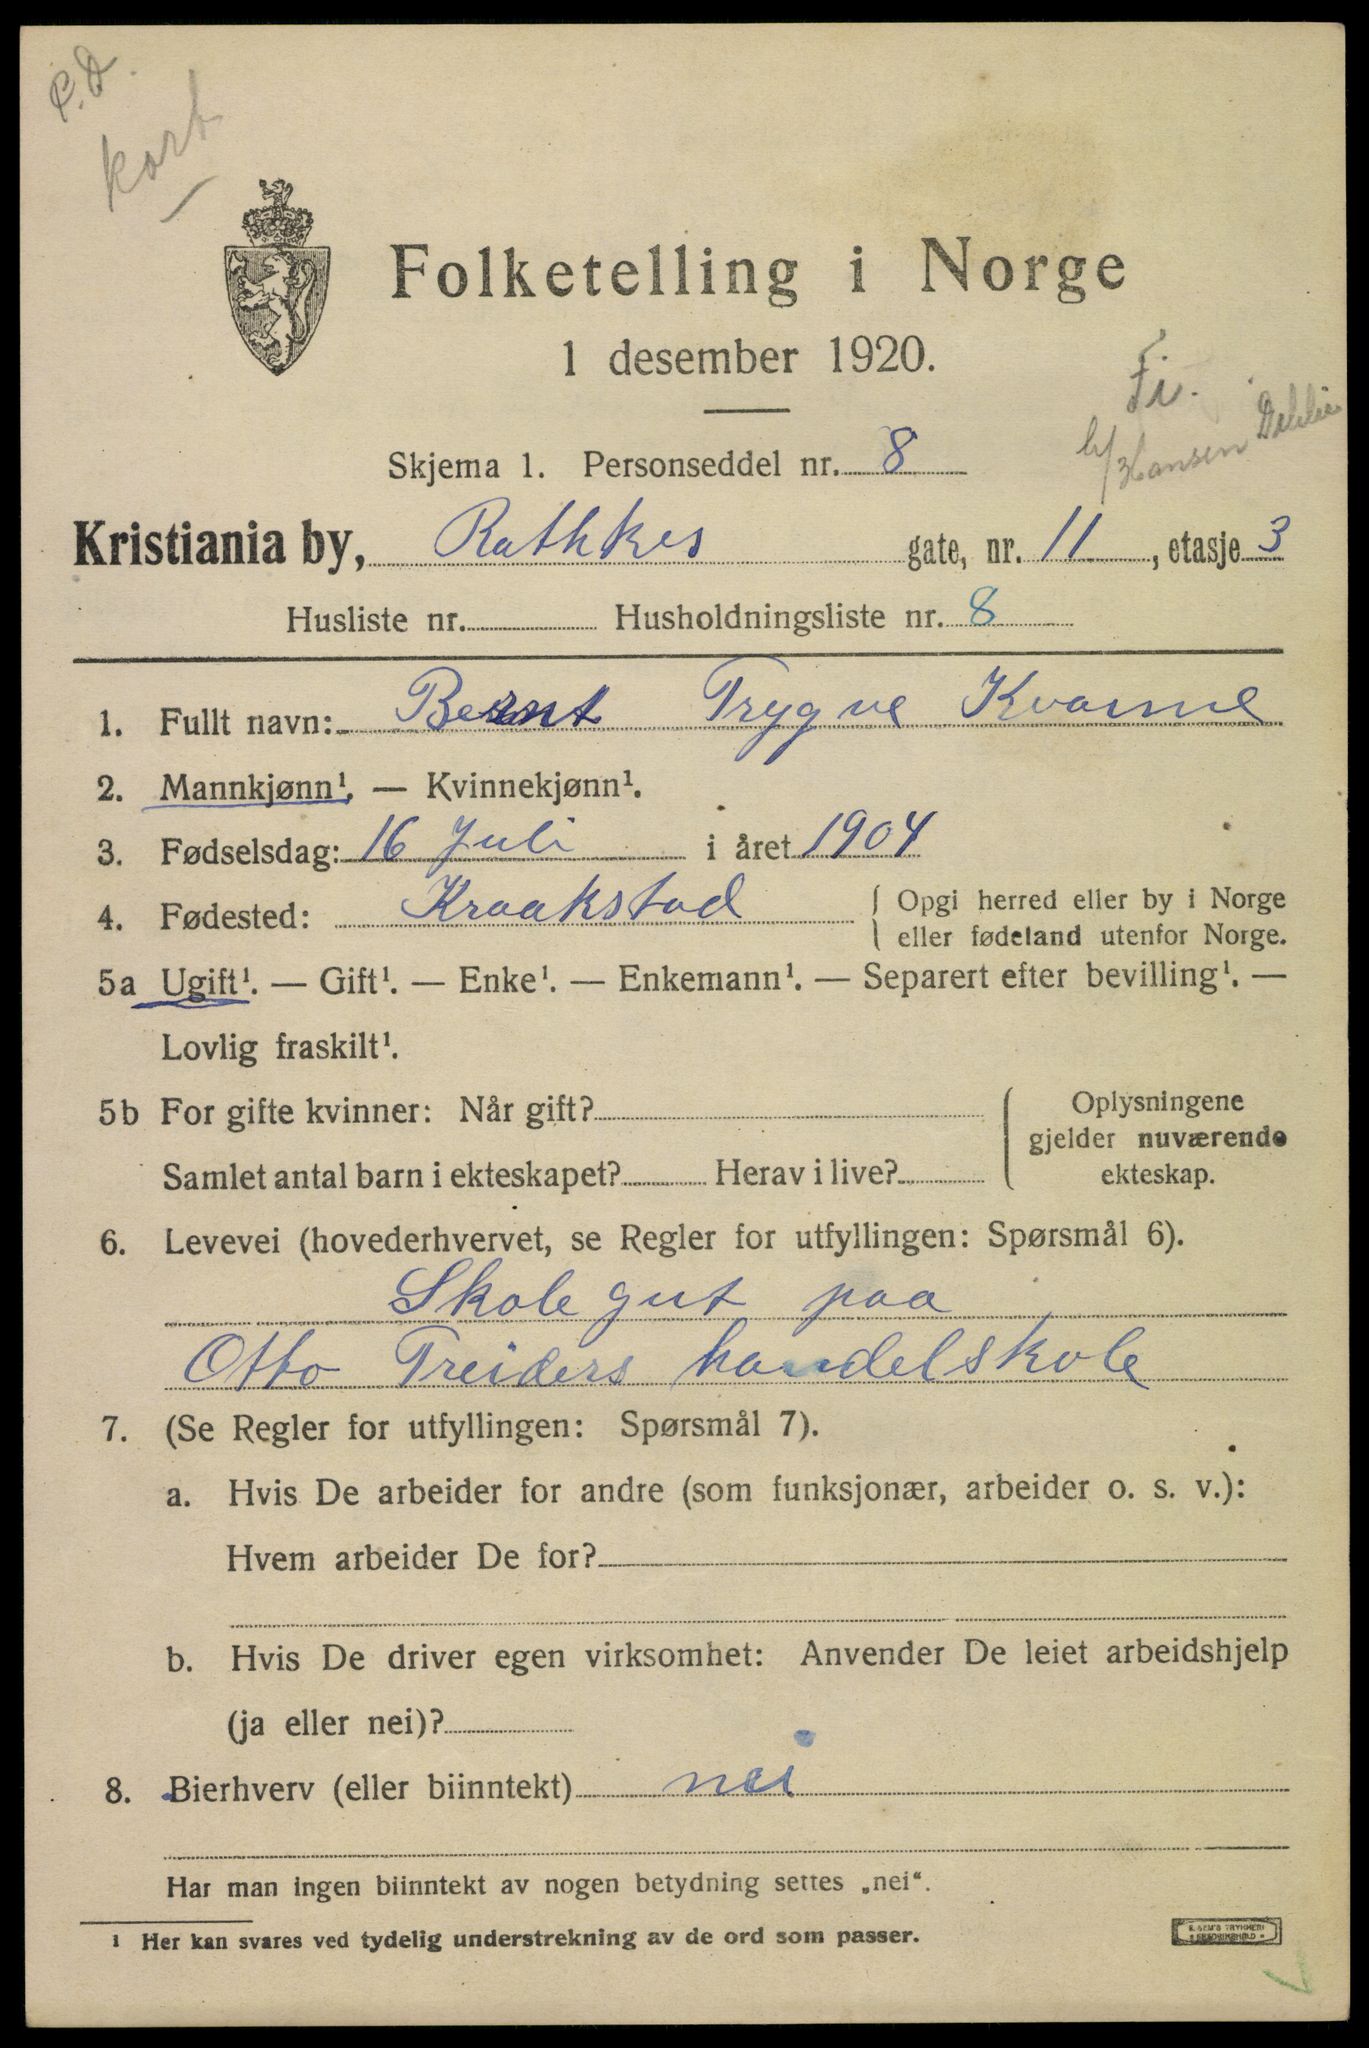 P.D.
kort
Folketelling i Norge
1 desember 1920.
Fi.
b/ Hansen
Skjema 1. Personseddel nr. 8
Kristiania by, Rathkes gate, nr. 11, etasje 3
Husliste nr. Husholdningsliste nr. 8
1. Fullt navn: Bernt Trygve Kvarme
2. Mannkjønn¹. — Kvinnekjønn¹.
3. Fødselsdag: 16 Juli i året 1904
4. Fødested: Kraakstad { Opgi herred eller by i Norge
eller fødeland utenfor Norge.
5a Ugift¹. — Gift¹. — Enke¹. — Enkemann¹. — Separert efter bevilling¹. —
Lovlig fraskilt¹.
5b For gifte kvinner: Når gift? { Oplysningene
gjelder nuværende
Samlet antal barn i ekteskapet? Herav i live? ekteskap.
6. Levevei (hovederhvervet, se Regler for utfyllingen: Spørsmål 6).
Skolegut paa
Otto Treiders handelskole
7. (Se Regler for utfyllingen: Spørsmål 7).
a. Hvis De arbeider for andre (som funksjonær, arbeider o. s. v.):
Hvem arbeider De for?
b. Hvis De driver egen virksomhet: Anvender De leiet arbeidshjelp
(ja eller nei)?
8. Bierhverv (eller biinntekt) nei
Har man ingen biinntekt av nogen betydning settes „nei“.
¹ Her kan svares ved tydelig understrekning av de ord som passer.
E. SEM'S TRYKKERI
FREDRIKSHALD